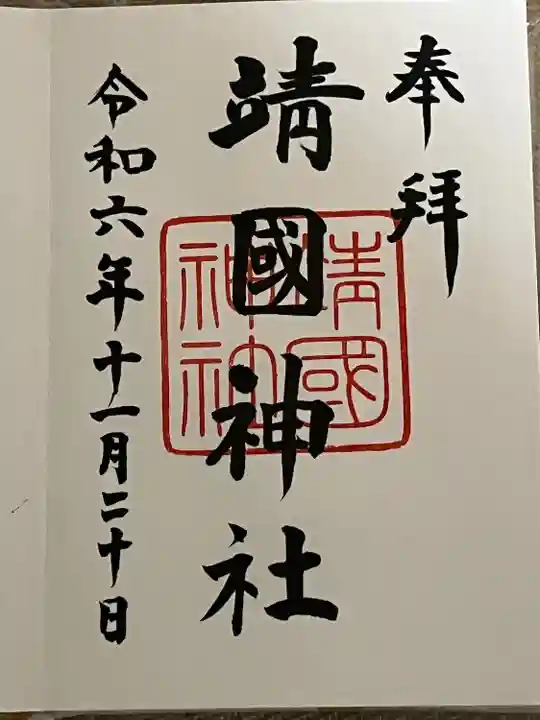 奉拝
靖國神社
靖國神社
令和六年十一月二十日